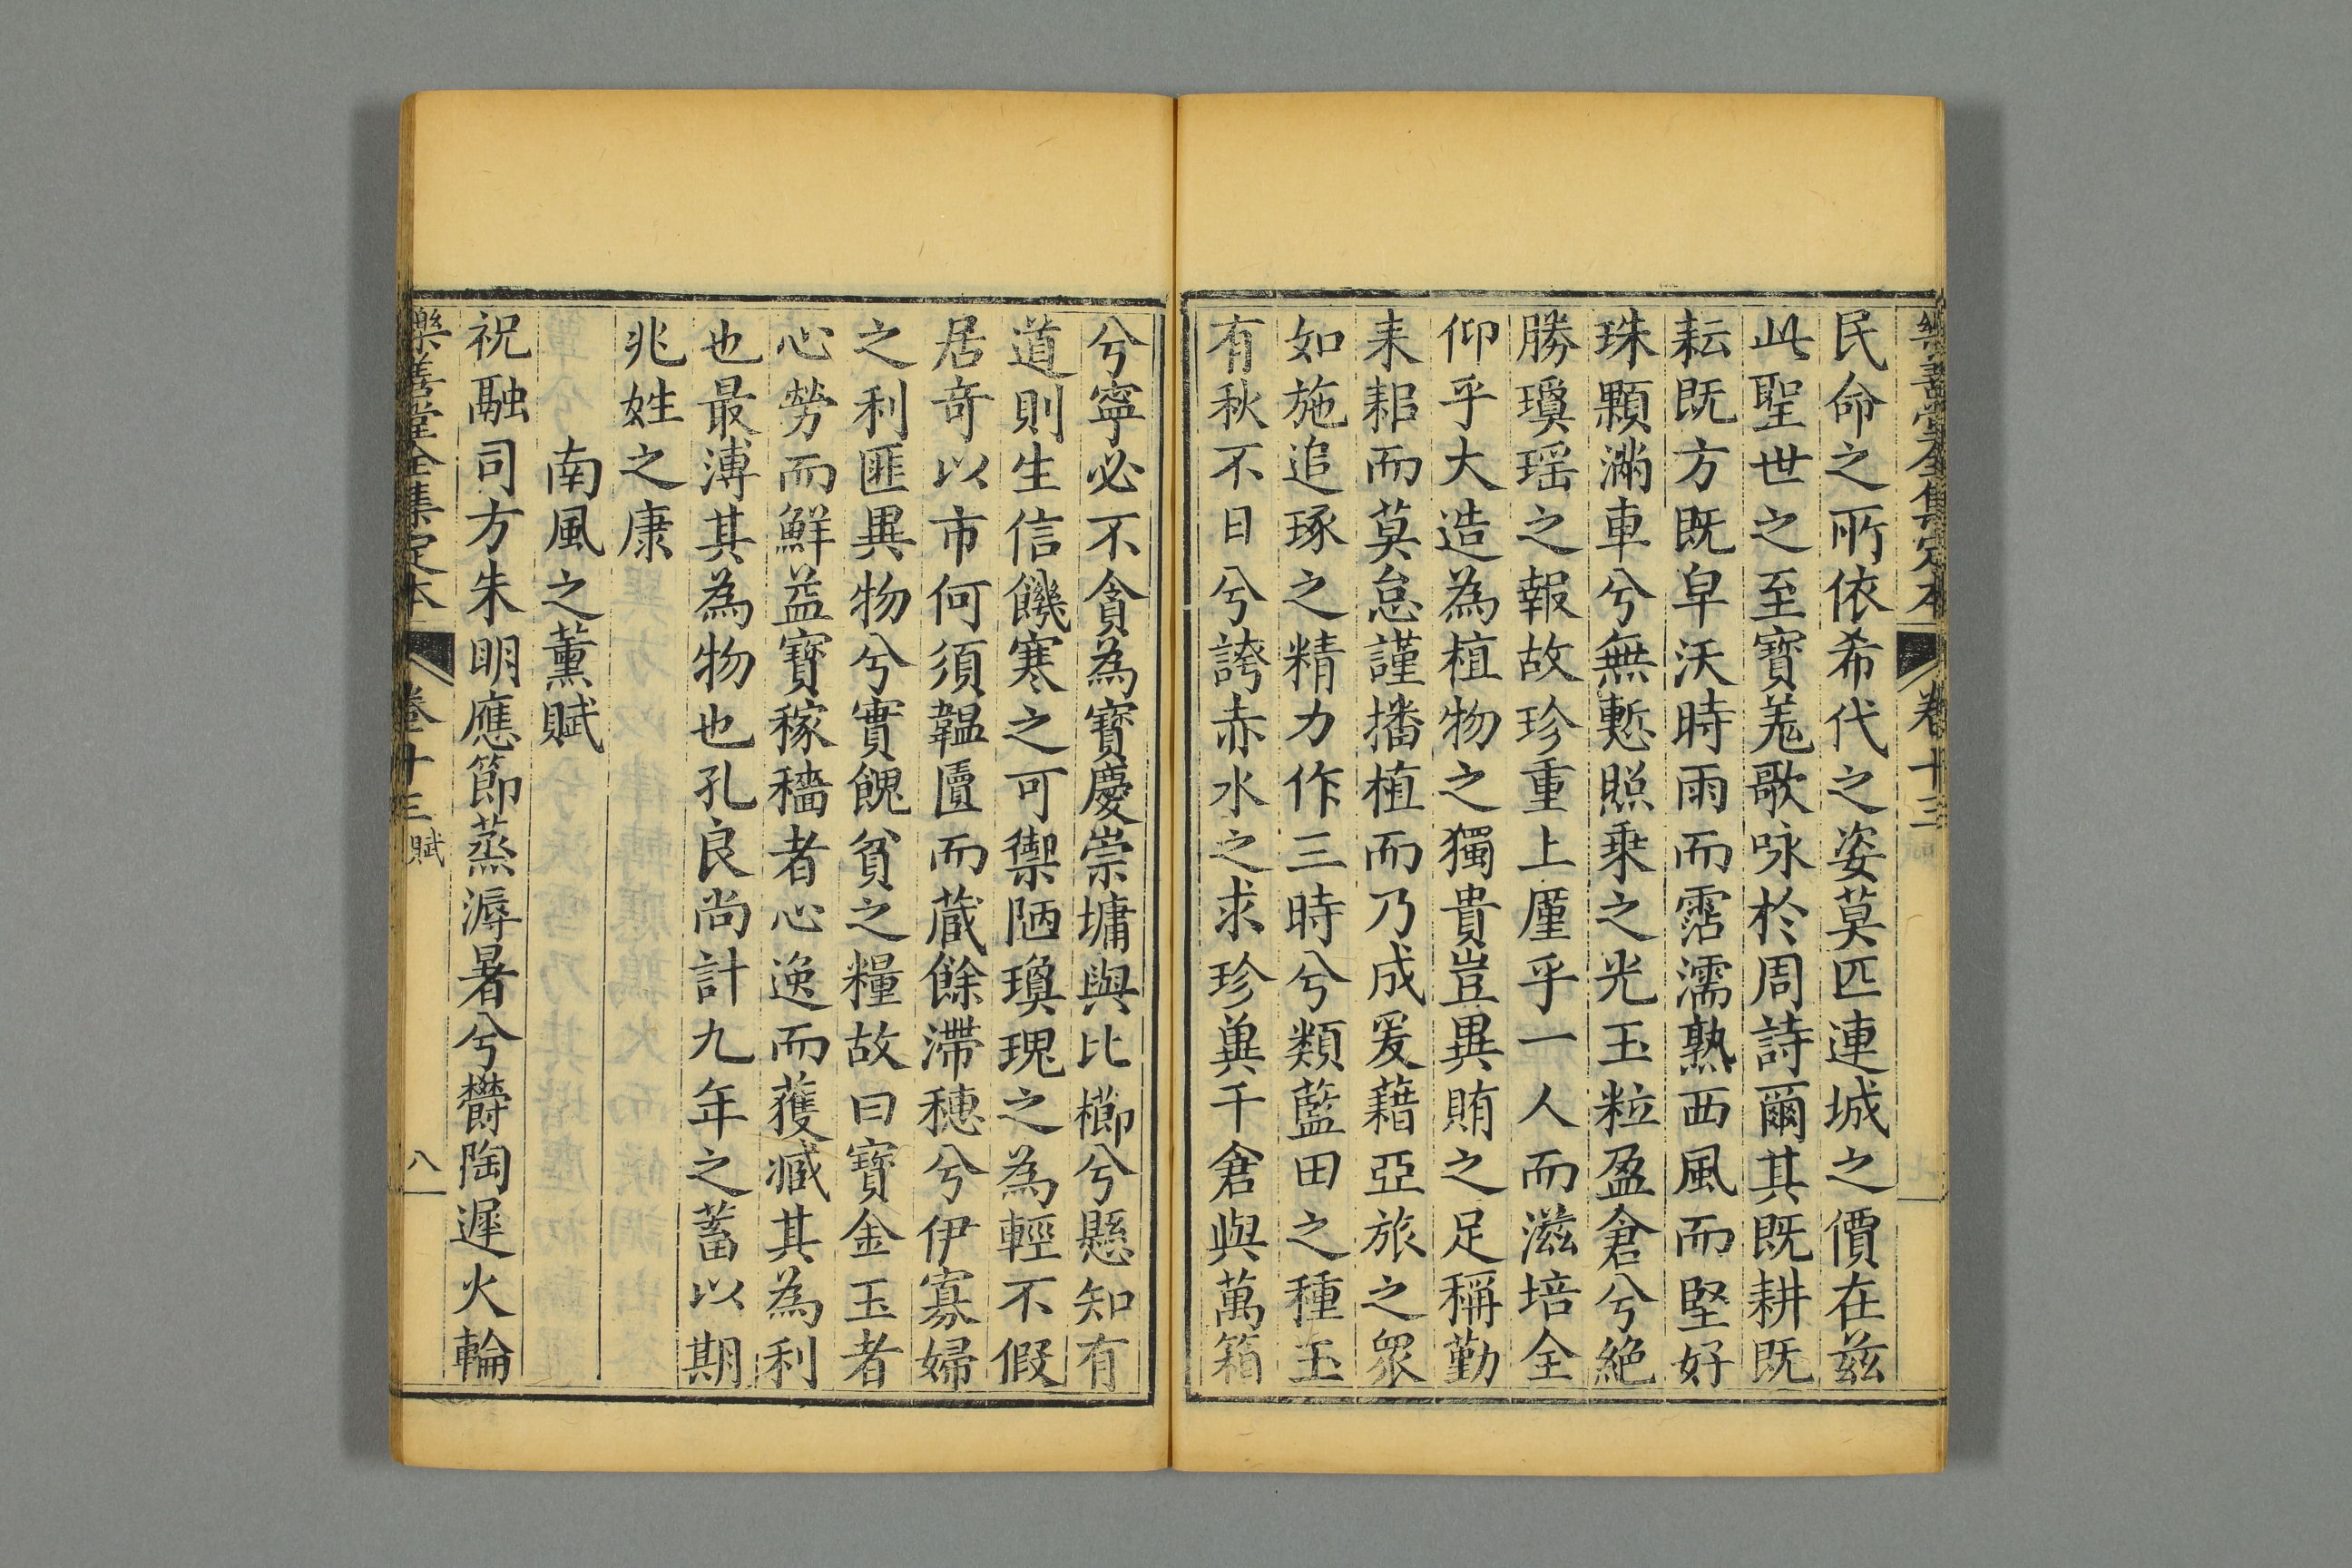 樂善堂全集定本 卷十三
民命之所依希代之姿莫匹連城之價在茲
此聖世之至寶羗歌咏於周詩爾其既耕既
耘既方既皁沃時雨而霑濡熟西風而堅好
珠顆滿車兮無慙照乗之光玉粒盈倉兮絶
勝瓊瑶之報故珍重上厪乎一人而滋培全
仰乎大造為植物之獨貴豈異賄之足稱勤
耒耜而莫怠謹播植而乃成爰藉亞旅之衆
如施追琢之精力作三時兮類藍田之種玉
有秋不日兮誇赤水之求珍兾千倉與萬箱
兮寧必不貪為寶慶崇墉與比櫛兮懸知有
道則生信饑寒之可禦陋瓊瑰之為輕不假
居竒以市何須韞匵而蔵餘滯穗兮伊寡婦
之利匪異物兮實餽貧之糧故曰寶金玉者
心勞而鮮益寶稼穡者心逸而獲臧其為利
也最溥其為物也孔良尚計九年之蓄以期
兆姓之康
南風之薰賦
祝融司方朱明應節蒸溽暑兮欝陶遲火輪
樂善堂全集定本 卷十三 賦 八